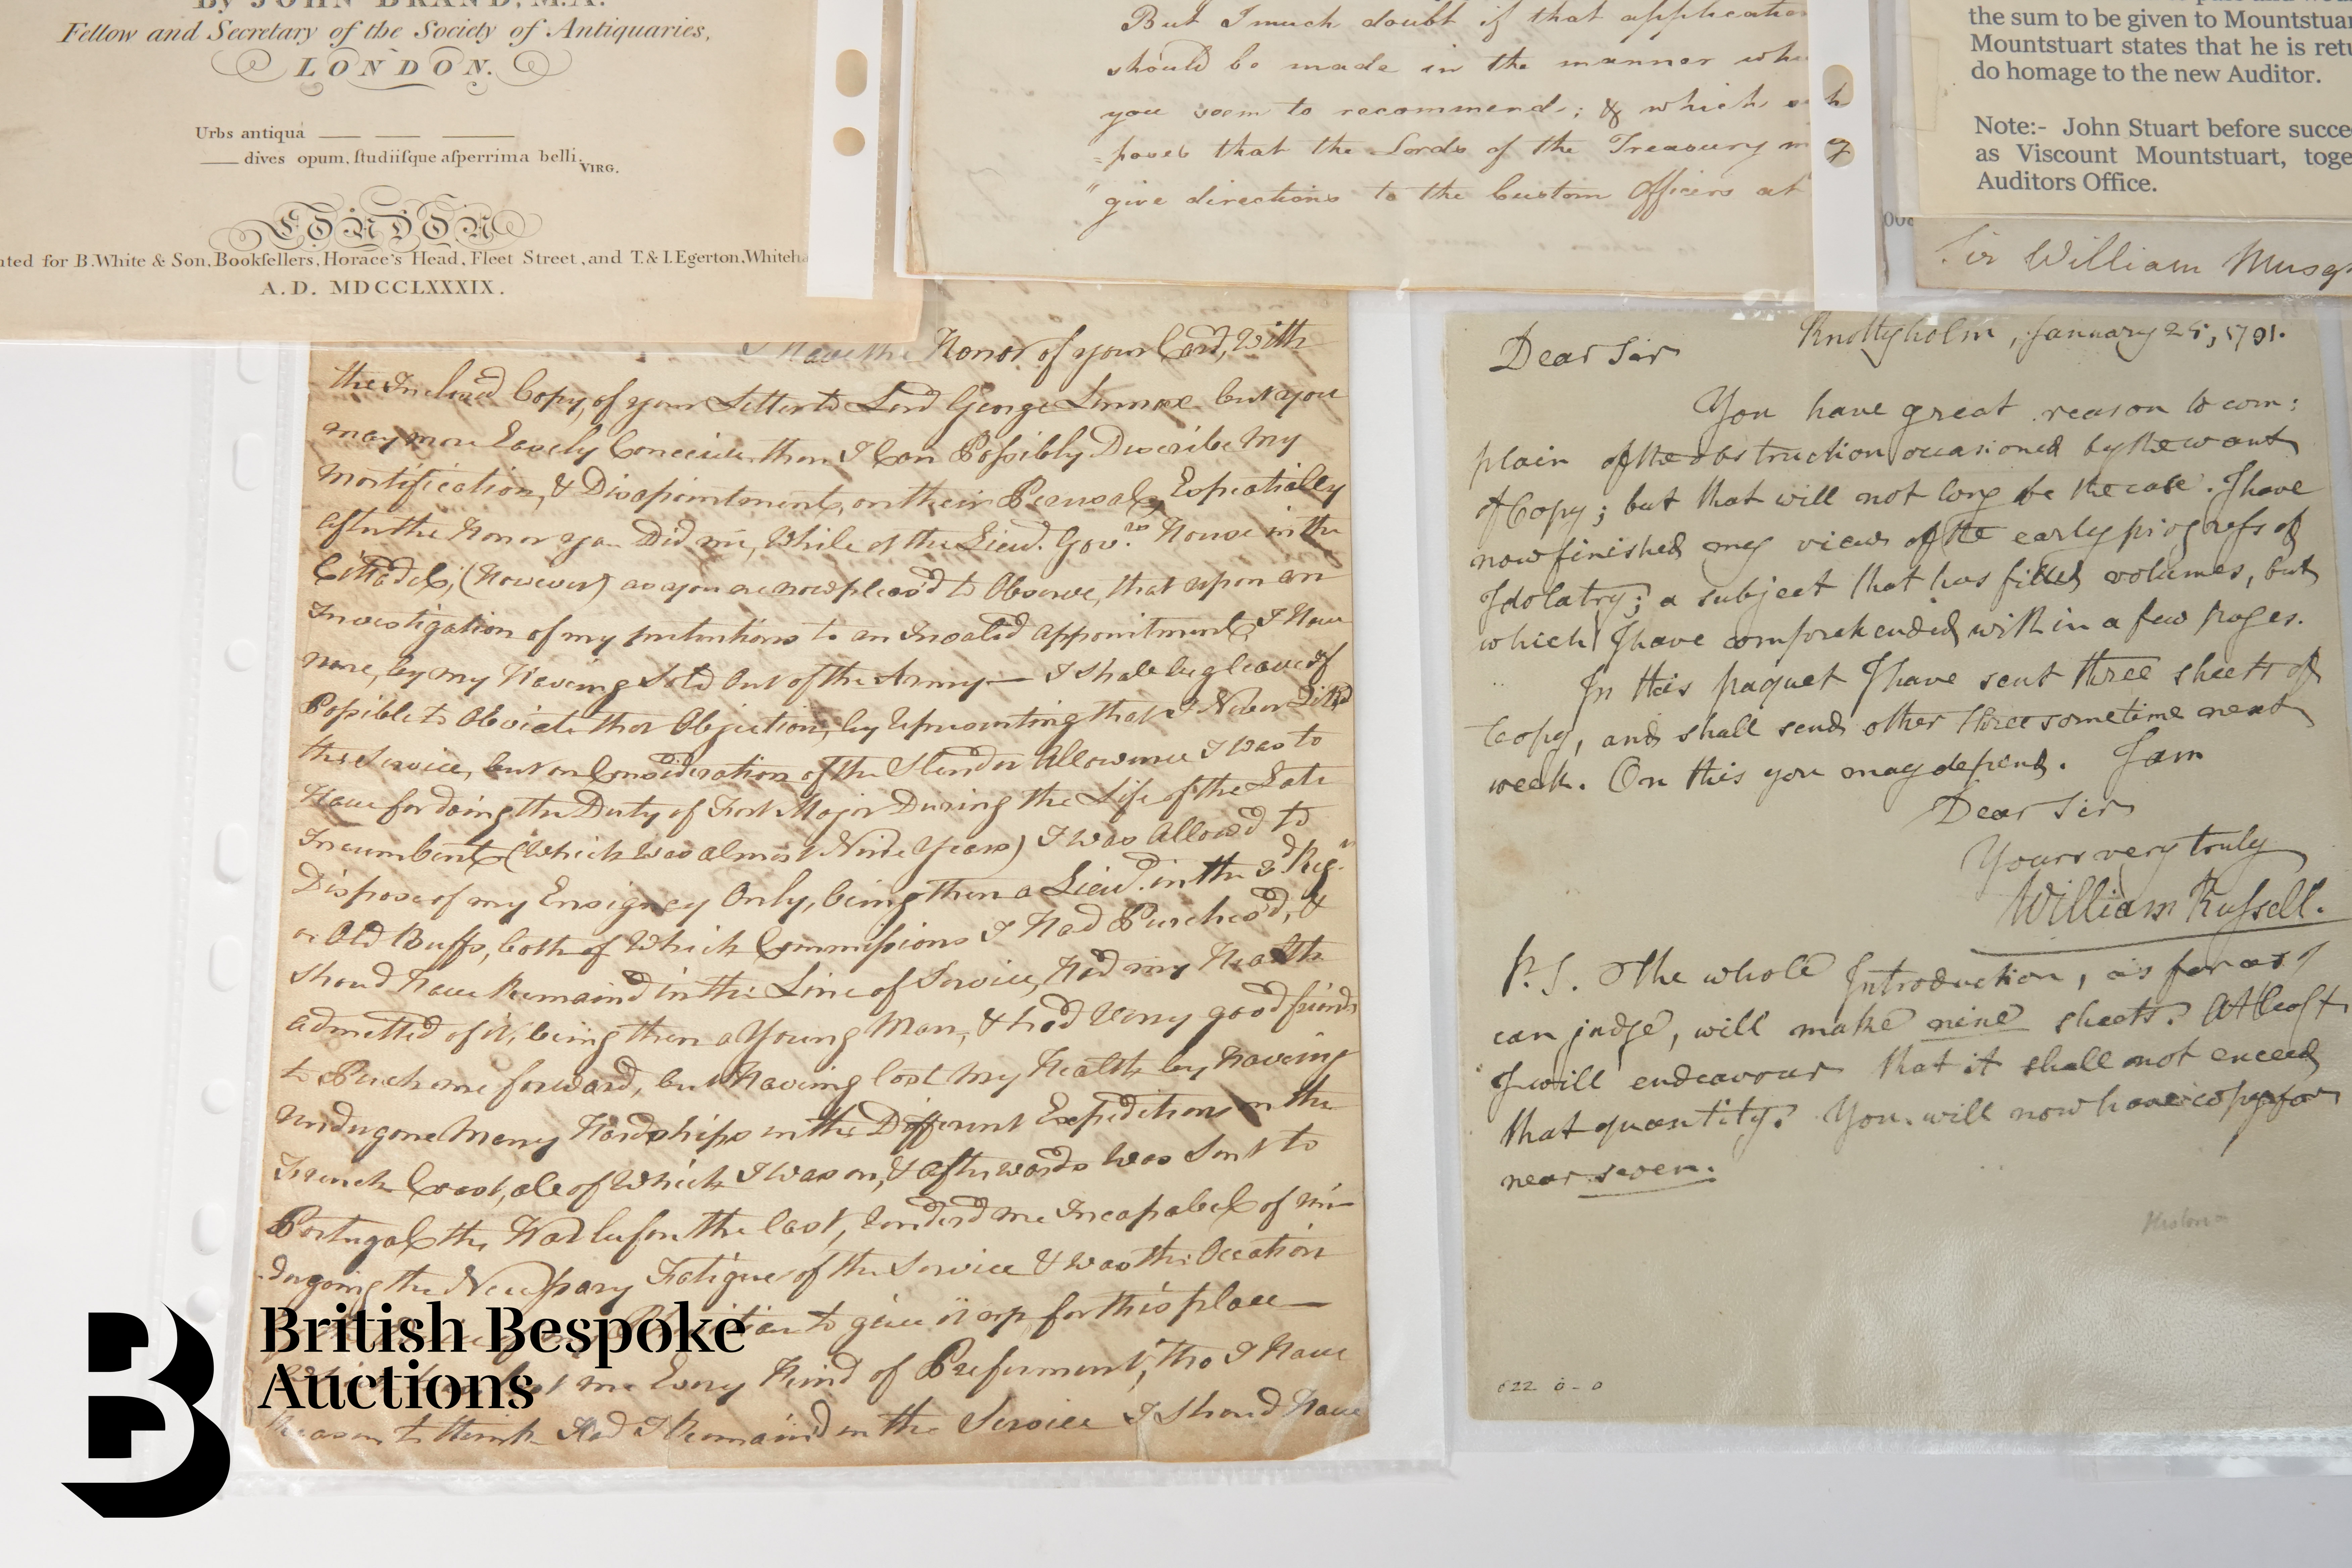 By JOHN BRAND, M.A.
Fellow and Secretary of the Society of Antiquaries,
LONDON.
Urbs antiqua
dives opum, ſtudiiſque aſperrima belli.
VIRG.
LONDON
nted for B.White & Son, Bookſellers, Horace's Head, Fleet Street, and T.& I.Egerton, Whiteh
A.D. MDCCLXXXIX.
But I much doubt if that applicatio
should be made in the manner whi
you seem to recommend; & which
=poses that the Lords of the Treasury
"give directions to the Custom Officers at
the sum to be given to Mountstuar
Mountstuart states that he is retu
do homage to the new Auditor.
Note:- John Stuart before succe
as Viscount Mountstuart, toge
Auditors Office.
Sir William Musg
I Have the Honor of your Card, With
the Inclosed Copy, of your Letter to Lord George Lennox but you
may more Easely Conceive then I Can Possibly Describe My
Mortification, & Disapointment, on their Perusal, Espetially
after the Honor you Did me, While at the Lieud. Gov.rs House in the
Cittadel, (However) as you are now pleas'd to Observe, that upon an
Investigation of my pretentions to an Invalid appointment, I Have
none, by my Having Sold Out of the Army— I shall beg leave if
Posible to Obviate that Objection, by Representing that I Never
the Service, but on Consideration of the Slender Allowance I was to
Have for doing the Duty of Fort Major During the Life of the Late
Incumbent (Which Was almost Nine Years) I was Allowed to
Dispose of my Ensigncy Only, being then a Lieud. in the 3d Reg.t
or Old Buffs, both of Which Commissions I Had Purchas'd, &
Shoud Have Remain'd in the Line of Service, Had my Health
admitted of it, being then a Young Man, & had Very good friends
to Push me forward, but Having lost My Health by Having
undergone Many Hardships in the Different Expeditions on the
French Coast, all of Which I Was on, & afterwards Was Sent to
Portugal the War before the last, renderd me Incapabel of un—
dergoing the Necessary Fatigue of the Service & was the Occation
to give it up for this place—
me Every Kind of Preferment, tho I Have
Reason to think Had I Remain'd in the Service I Shoud Have
Dear Sir
Knottyholm, January 25, 1791.
You have great reason to com:
plain of the obstruction occasioned by the want
of Copy; but that will not long be the case. I have
now finished my view of the early progress of
Idolatry; a subject that has filled volumes, but
which I have comprehended within a few pages.
In this paquet I have sent three sheets of
Copy, and shall send other three sometime next
week. On this you may depend. I am
Dear Sir
Yours very truly
William Russell.
P.S. The whole Introduction, as far as I
can judge, will make nine sheets. At least
I will endeavour that it shall not exceed
that quantity. You will now have copy for
near seven.
British Bespoke
Auctions